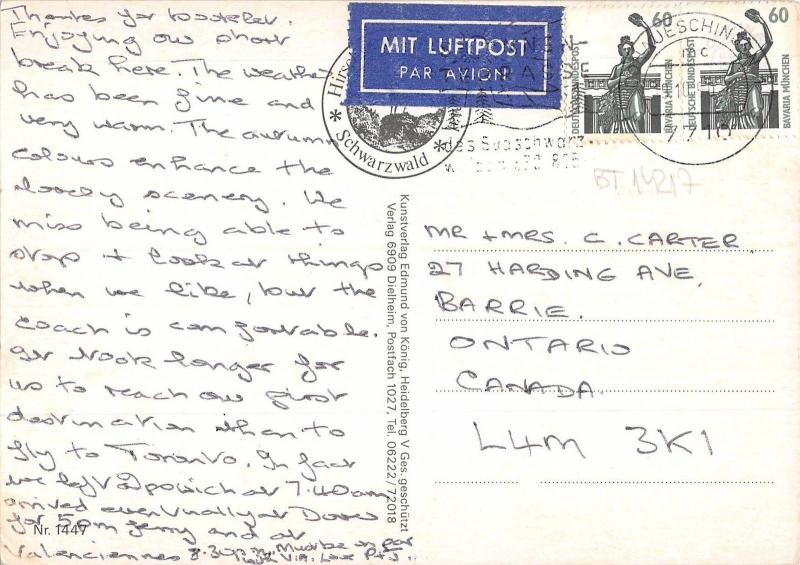 Thanks for booklet.
Enjoying our short
break here. The weather
has been fine and
very warm. The autumn
colours enhance the
lovely scenery. We
miss being able to
stop + look at things
when we like, but the
coach is comfortable.
It took longer for
us to reach our first
destination than to
fly to Toronto. In fact
we left Ipswich at 7.40am
arrived eventually at Dover
for 5pm ferry and at
Valenciennes 8.30pm. Must be on par
with VIA. Love P + J.
Nr. 1447
MIT LUFTPOST
PAR AVION
Schwarzwald
60
DEUTSCHE BUNDESPOST
BAVARIA MÜNCHEN
60
DEUTSCHE BUNDESPOST
BAVARIA MÜNCHEN
UESCHIN
BT 14217
Kunstverlag Edmund von König, Heidelberg V Ges. geschützt
Verlag 6909 Dielheim, Postfach 1027, Tel. 06222/72018
MR + MRS. C. CARTER
27 HARDING AVE,
BARRIE.
ONTARIO
CANADA.
L4M 3K1